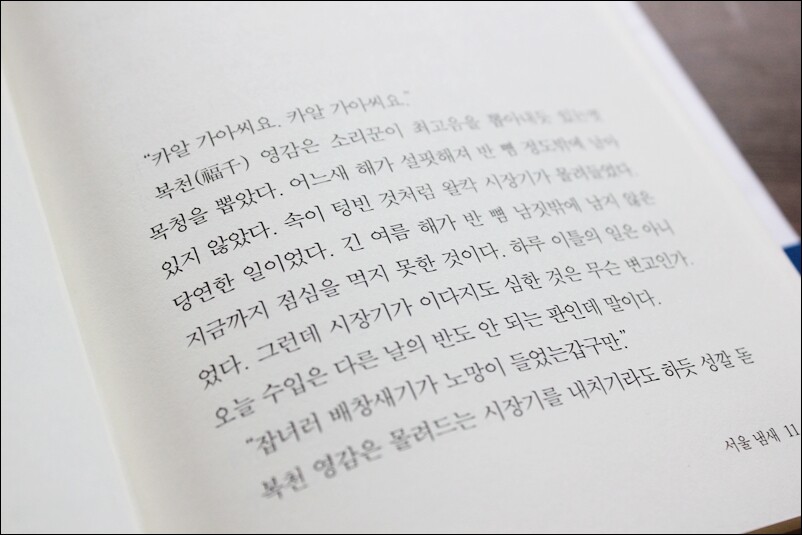 “카알 가아씨요. 카알 가아씨요.”
복천(福千) 영감은 소리꾼이 최고음을 뽑아내듯 있는껏
목청을 뽑았다. 어느새 해가 설핏해져 반 뼘 정도밖에 남아
있지 않았다. 속이 텅빈 것처럼 왈칵 시장기가 몰려들었다.
당연한 일이었다. 긴 여름 해가 반 뼘 남짓밖에 남지 않은
지금까지 점심을 먹지 못한 것이다. 하루 이틀의 일은 아니
었다. 그런데 시장기가 이다지도 심한 것은 무슨 변고인가.
오늘 수입은 다른 날의 반도 안 되는 판인데 말이다.
“잡녀러 배창새기가 노망이 들었는갑구만.”
복천 영감은 몰려드는 시장기를 내치기라도 하듯 성깔 돋
서울 냄새 11